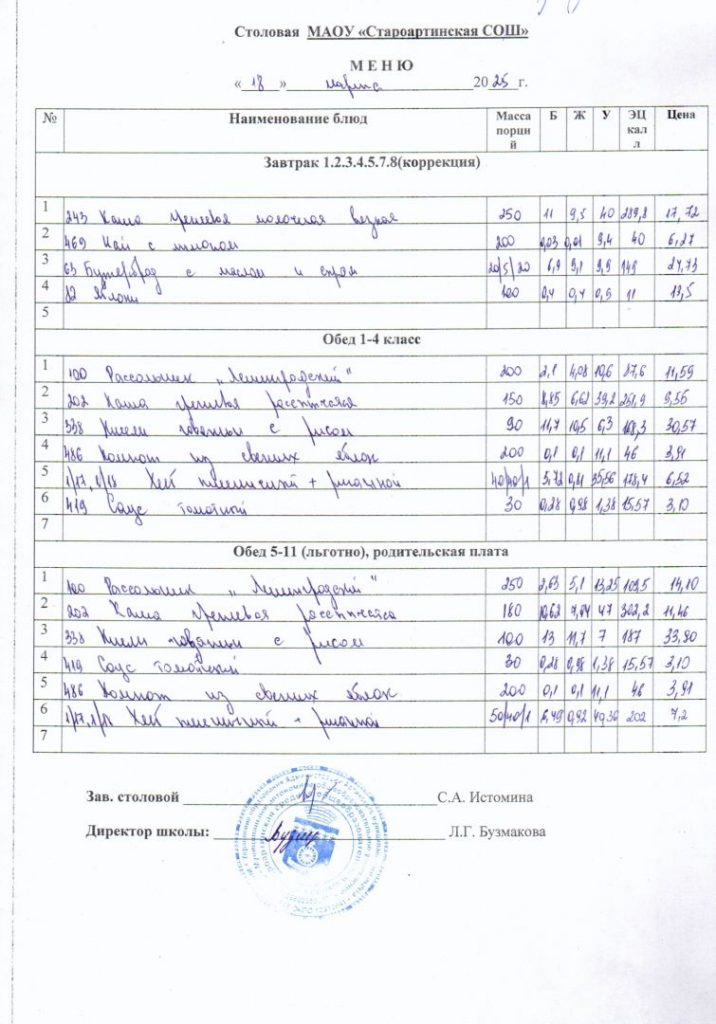 Столовая МАОУ «Староартинская СОШ»
М Е Н Ю
« 18 » марта 2025 г.
№ Наименование блюд Масса порций Б Ж У ЭЦ калл Цена
Завтрак 1.2.3.4.5.7.8(коррекция)
1 243 Каша гречневая молочная вязкая 250 11 9,5 40 289,8 17,72
2 469 Чай с лимоном 200 0,03 0,01 9,4 40 6,27
3 63 Бутерброд с маслом и сыром 20/5/20 6,9 9,1 9,9 149 24,73
4 82 Яблоки 100 0,4 0,4 0,9 11 13,5
5
Обед 1-4 класс
1 100 Рассольник „Ленинградский" 200 2,1 4,08 10,6 87,6 11,59
2 202 Каша гречневая рассыпчатая 150 8,85 6,62 39,2 251,9 9,56
3 338 говядины с рисом 90 11,7 10,5 6,3 168,3 30,57
4 486 Компот из свежих яблок 200 0,1 0,1 11,1 46 3,91
5 Хлеб пшеничный + ржаной 40/40/1 5,72 0,81 35,56 178,4 6,52
6 419 Соус томатный 30 0,28 0,98 1,38 15,57 3,10
7
Обед 5-11 (льготно), родительская плата
1 100 Рассольник „Ленинградский" 250 2,63 5,1 13,25 109,5 14,10
2 202 Каша гречневая рассыпчатая 180 10,62 7,94 47 302,2 11,46
3 338 говядины с рисом 100 13 11,7 7 187 33,90
4 419 Соус томатный 30 0,28 0,98 1,38 15,57 3,10
5 486 Компот из свежих яблок 200 0,1 0,1 11,1 46 3,91
6 Хлеб пшеничный + ржаной 50/40/1 6,49 0,92 40,36 202 7,2
7
Зав. столовой С.А. Истомина
Директор школы: Л.Г. Бузмакова